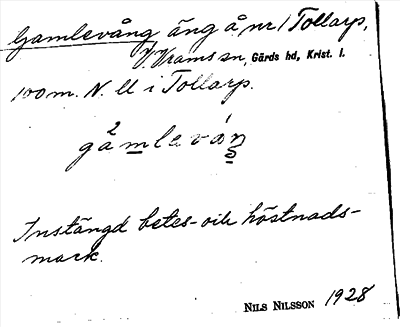 Gamlevång äng å nr 1 Tollarp,
V. Vrams sn, Gärds hd, Krist. l.
100 m. N. ll i Tollarp.
gamlevåŋ
Instängd betes- och höstnads-
mark.
NILS NILSSON 1928